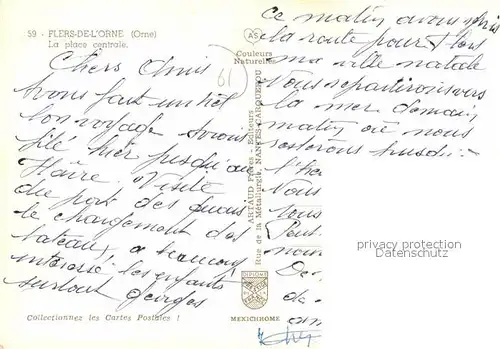 59 - FLERS-DE-L'ORNE (Orne)
La place centrale.
Chers Amis
Avons fait un très
bon voyage Avons
filé hier jusqu'au
Hâvre. Visité
du port des quais
le chargement des
bateaux! a beaucoup
intéressé les enfants
surtout Georges
Collectionnez les Cartes Postales !
61
AS
Couleurs
Naturelles
ARTAUD Frères - Editeurs
Rue de la Métallurgie, NANTES-CARQUEFOU
DIPLOME
MEXICHROME
Ce matin avons repris
la route pour Flers
ma ville natale
Nous repartirons vers
la mer demain
matin où nous
resterons jusqu'
Nous
tous
privacy protection
Datenschutz